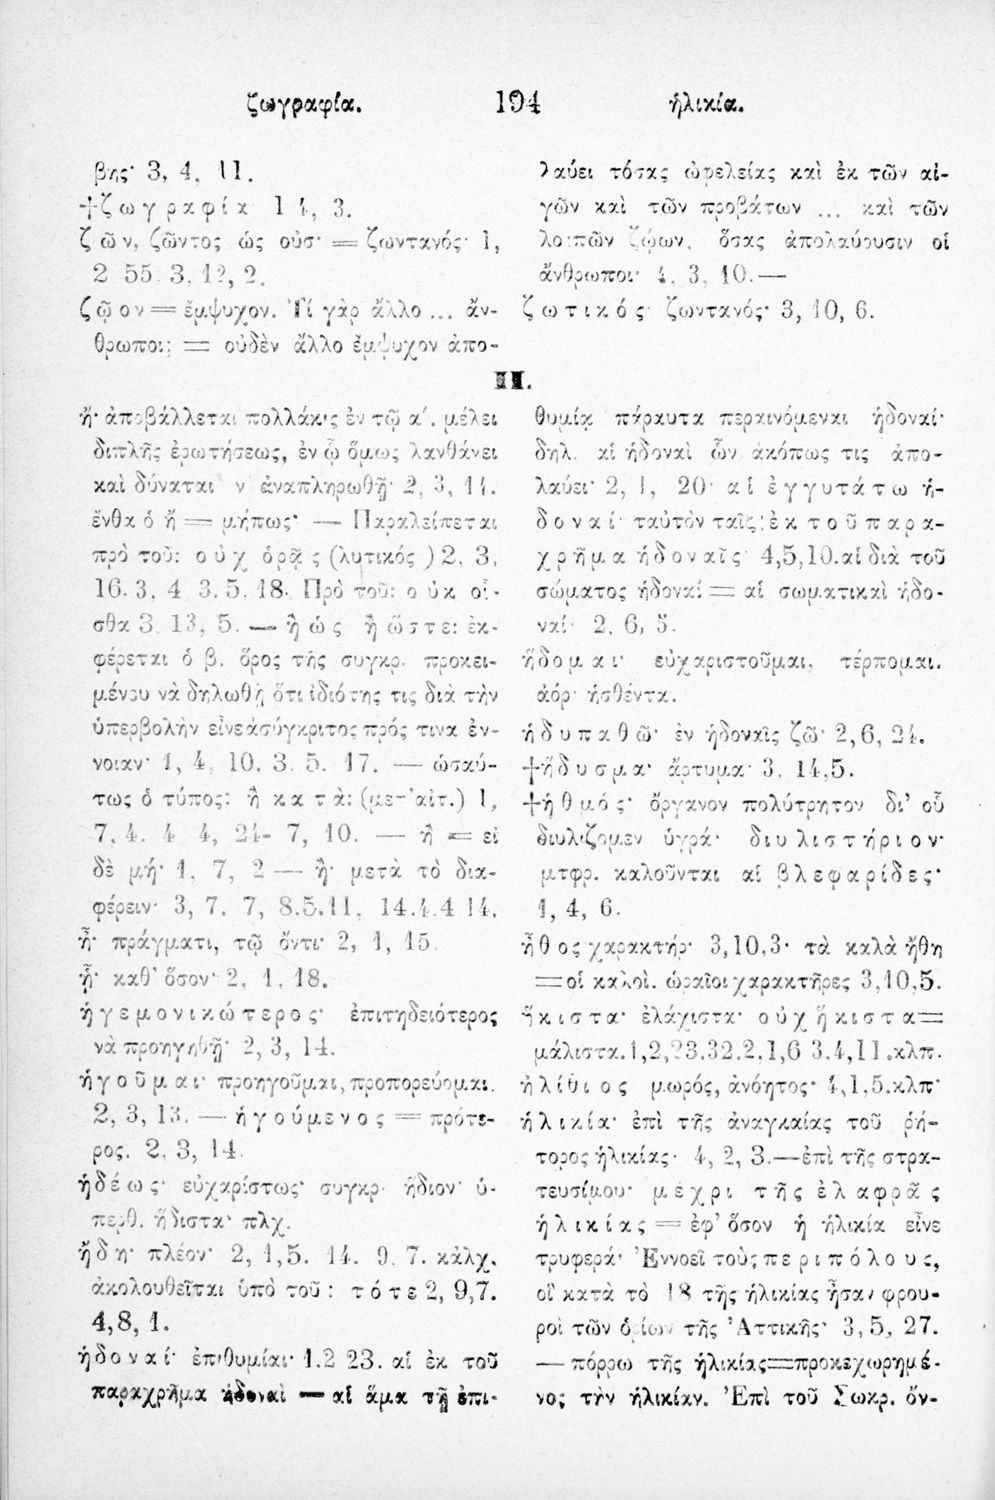 ζωγραφία. 194 ἡλικία.
βης· 3, 4, 11.
+ζωγραφία 14, 3.
ζῶν, ζῶντος ὡς οὐσ· = ζωντανός· 1,
2 55. 3, 12, 2.
ζῷον = ἔμψυχον. Τί γὰρ ἄλλο ... ἄν-
θρωποι; = οὐδὲν ἄλλο ἔμψυχον ἀπο-
λαύει τόσας ὠφελείας καὶ ἐκ τῶν αἰ-
γῶν καὶ τῶν προβάτων ... καὶ τῶν
λοιπῶν ζῴων, ὅσας ἀπολαύουσιν οἱ
ἄνθρωποι· 4, 3, 10.—
ζωτικός· ζωντανός· 3, 10, 6.
Η.
ἤ· ἀποβάλλεται πολλάκις ἐν τῷ α΄. μέλει
διπλῆς ἐρωτήσεως, ἐν ᾧ ὅμως λανθάνει
καὶ δύναται ν ἀναπληρωθῇ· 2, 3, 14.
ἔνθα ὁ ἤ = μήπως· — Παραλείπεται
πρὸ τοῦ: οὐχ ὁρᾷς (λυτικός) 2, 3,
16. 3, 4 3. 5. 18. Πρὸ τοῦ: οὐκ οἶ-
σθα 3. 13, 5. — ἢ ὡς ἢ ὥστε: ἐκ-
φέρεται ὁ β. ὅρος τῆς συγκρ. προκει-
μένου νὰ δηλωθῇ ὅτι ἰδιότης τις διὰ τὴν
ὑπερβολὴν εἶνε ἀσύγκριτος πρός τινα ἔν-
νοιαν· 1, 4, 10. 3. 5. 17. — ὡσαύ-
τως ὁ τύπος: ἢ κατὰ: (μετ' αἰτ.) 1,
7, 4. 4 4, 24- 7, 10. — ἢ = εἰ
δὲ μή· 1, 7, 2 — ἢ· μετὰ τὸ δια-
φέρειν· 3, 7. 7, 8.5.11, 14.4.4 14.
ἦ· πράγματι, τῷ ὄντι· 2, 1, 15.
ᾗ· καθ' ὅσον· 2, 1, 18.
ἡγεμονικώτερος· ἐπιτηδειότερος
νὰ προηγηθῇ· 2, 3, 14.
ἡγοῦμαι· προηγοῦμαι, προπορεύομαι.
2, 3, 13. — ἡγούμενος = πρότε-
ρος. 2, 3, 14.
ἡδέως· εὐχαρίστως· συγκρ. ἥδιον· ὑ-
περθ. ἥδιστα· πλχ.
ἤδη· πλέον· 2, 1,5. 14. 9. 7. κἀλχ.
ἀκολουθεῖται ὑπὸ τοῦ: τότε 2, 9,7.
4,8, 1.
ἡδοναί· ἐπιθυμίαι· 1.2 23. αἱ ἐκ τοῦ
παραχρῆμα ἡδοναὶ — αἱ ἅμα τῇ ἐπι-
θυμίᾳ πάραυτα περαινόμεναι ἡδοναί·
δηλ. αἱ ἡδοναὶ ὧν ἀκόπως τις ἀπο-
λαύει· 2, 1, 20· αἱ ἐγγυτάτω ἡ-
δοναί· ταὐτὸν ταῖς: ἐκ τοῦ παρα-
χρῆμα ἡδοναῖς 4,5,10. αἱ διὰ τοῦ
σώματος ἡδοναί = αἱ σωματικαὶ ἡδο-
ναί· 2, 6, 5.
ἥδομαι· εὐχαριστοῦμαι, τέρπομαι.
ἀόρ· ἡσθέντα.
ἡδυπαθῶ· ἐν ἡδοναῖς ζῶ· 2,6, 24.
+ἥδυσμα· ἄρτυμα· 3. 14,5.
+ἠθμός· ὄργανον πολύτρητον δι' οὗ
διυλίζομεν ὑγρά· διυλιστήριον·
μτφρ. καλοῦνται αἱ βλεφαρίδες·
1, 4, 6.
ἦθος χαρακτήρ· 3,10,3· τὰ καλὰ ἤθη
=οἱ καλοὶ, ὡραῖοι χαρακτῆρες 3,10,5.
ἥκιστα· ἐλάχιστα· οὐχ ἥκιστα=
μάλιστα. 1,2,23.32.2,1,6 3.4,11. κλπ.
ἠλίθιος μωρός, ἀνόητος· 4,1,5. κλπ·
ἡλικία· ἐπὶ τῆς ἀναγκαίας τοῦ ῥή-
τορος ἡλικίας· 4, 2, 3.—ἐπὶ τῆς στρα-
τευσίμου· μέχρι τῆς ἐλαφρᾶς
ἡλικίας = ἐφ' ὅσον ἡ ἡλικία εἶνε
τρυφερά· Ἐννοεῖ τοὺς περιπόλους,
οἳ κατὰ τὸ 18 τῆς ἡλικίας ἦσαν φρου-
ροὶ τῶν ὁρίων τῆς Ἀττικῆς· 3,5, 27.
— πόρρω τῆς ἡλικίας=προκεχωρημέ-
νος τὴν ἡλικίαν. Ἐπὶ τοῦ Σωκρ. ὄν-